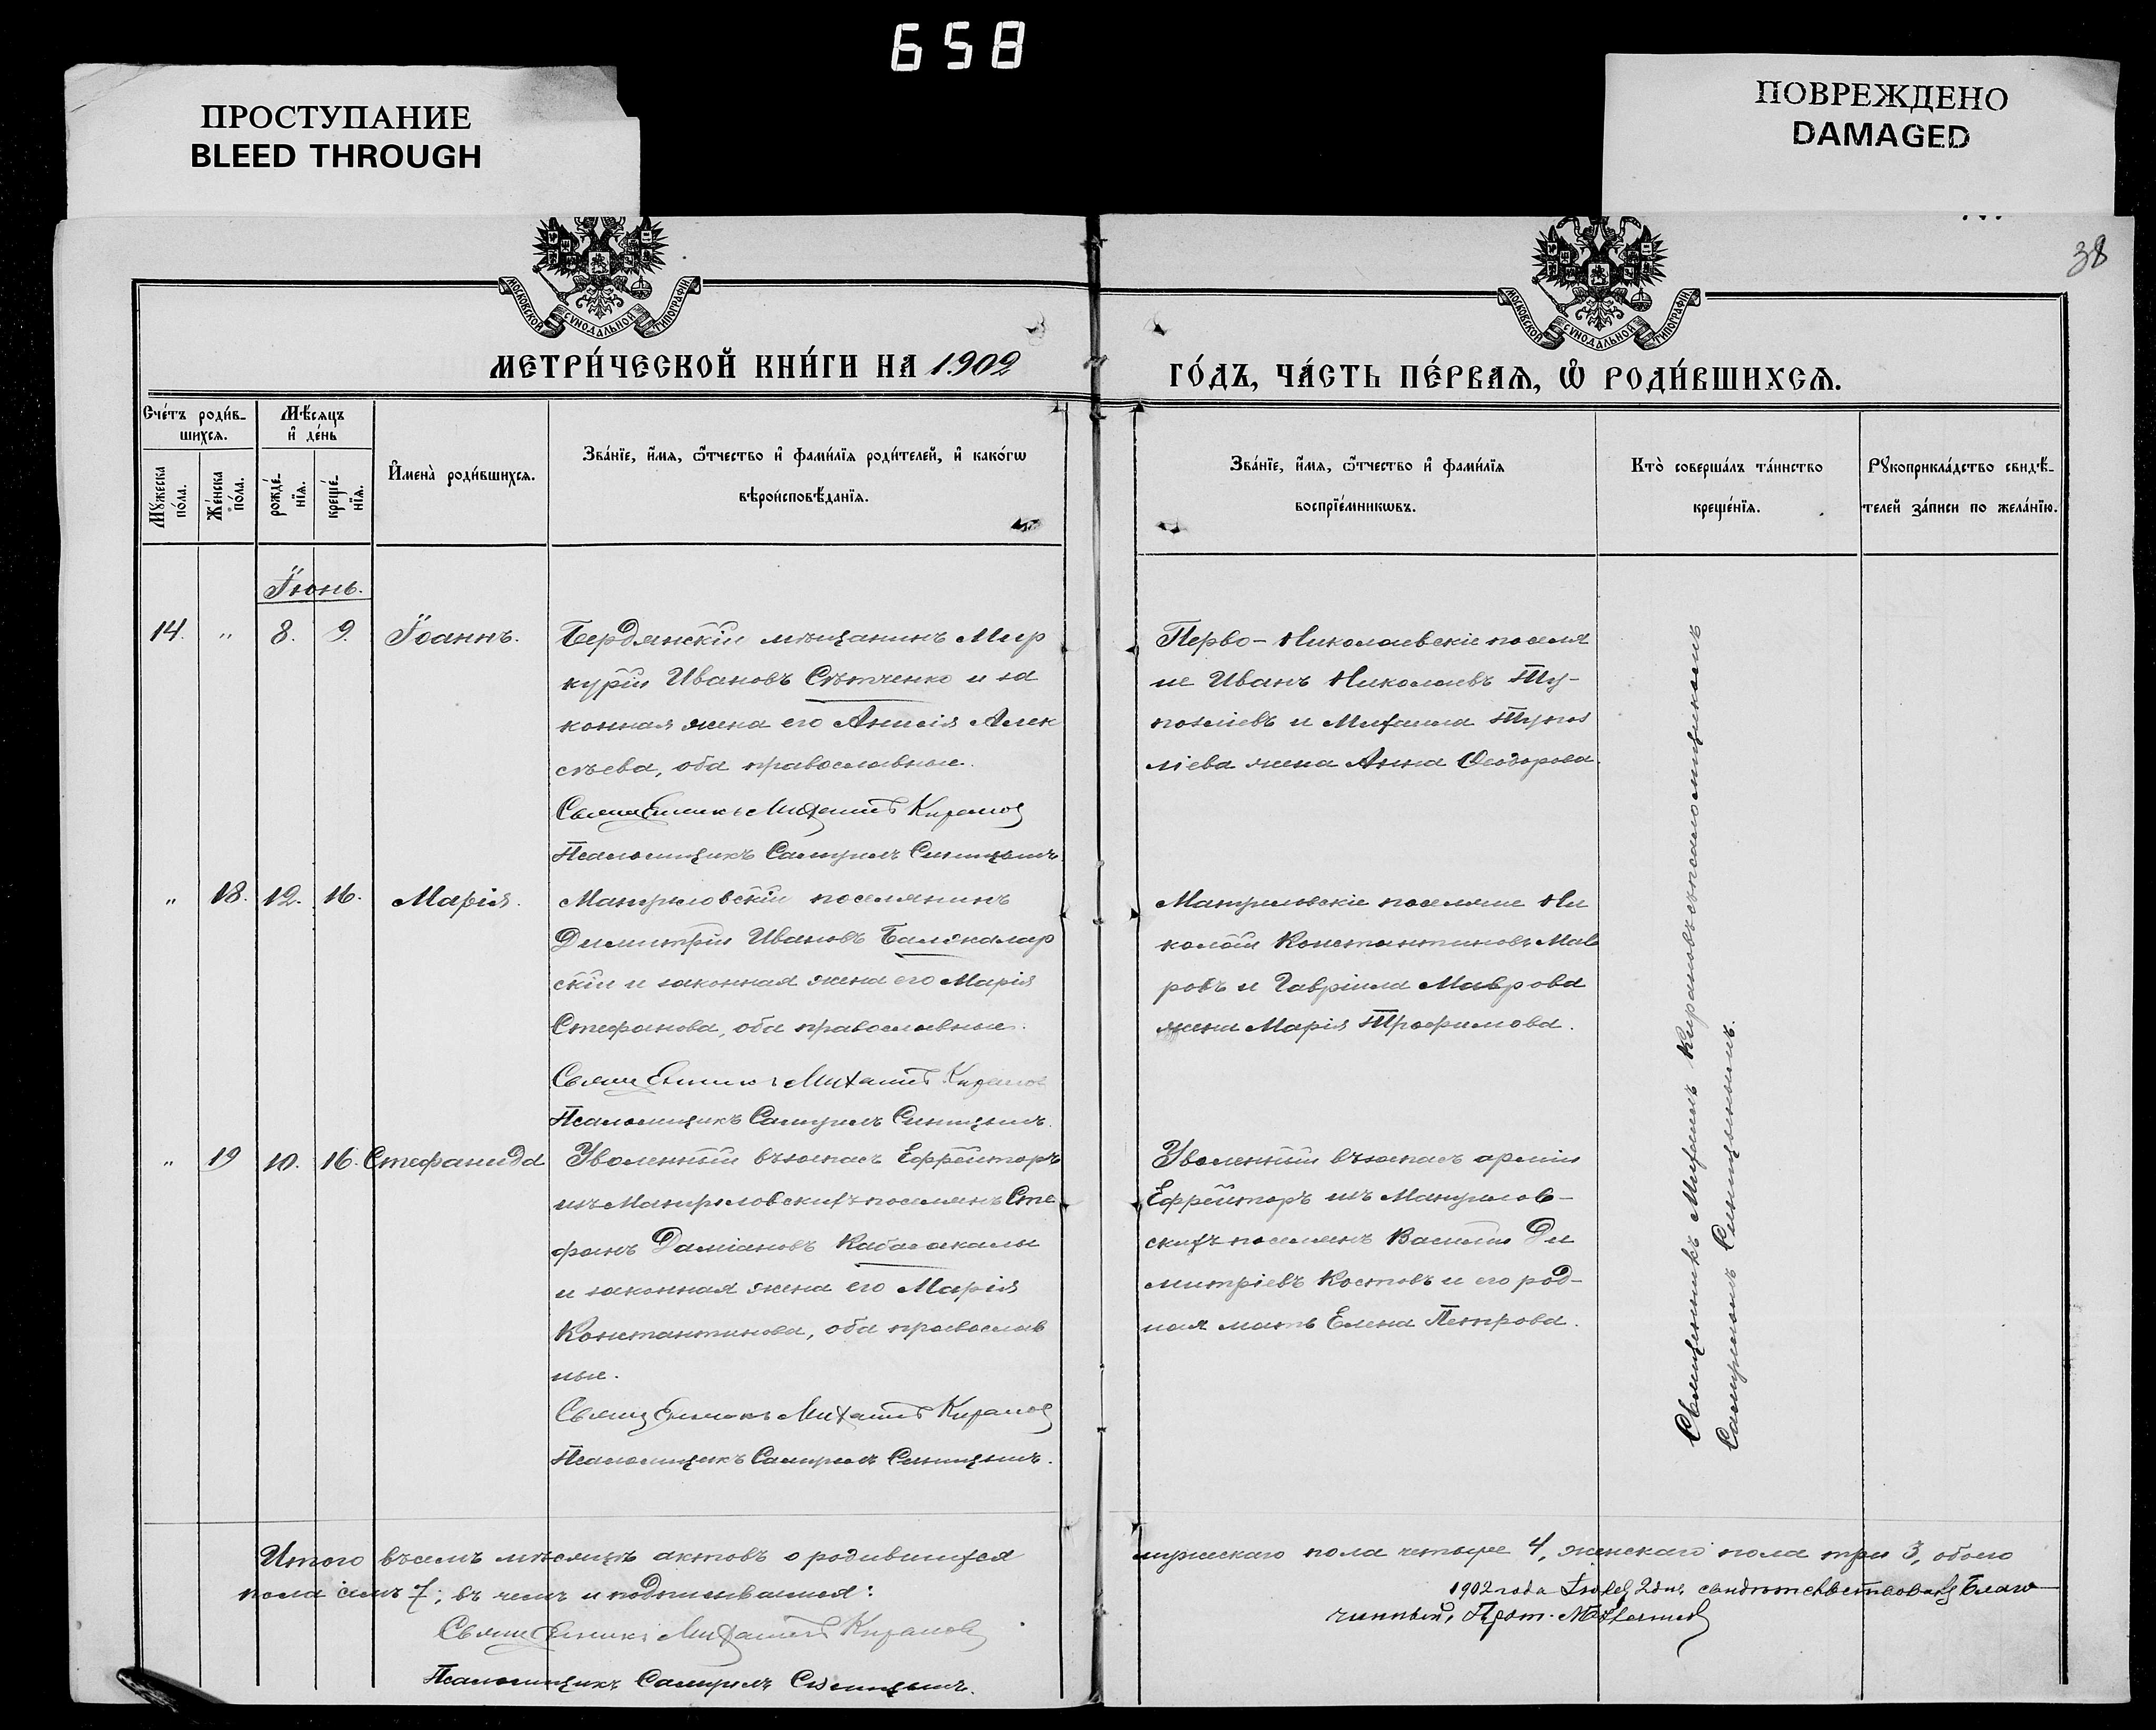 658
ПРОСТУПАНИЕ
BLEED THROUGH
ПОВРЕЖДЕНО
DAMAGED
38
МОСКОВСКОЙ СѴНОДАЛЬНОЙ ТИПОГРАФІИ
МОСКОВСКОЙ СѴНОДАЛЬНОЙ ТИПОГРАФІИ
МЕТРИ́ЧЕСКОЙ КНИ́ГИ НА 1902
ГО́ДЪ, ЧА́СТЬ ПЕ́РВАѦ, Ѡ РОДИ́ВШИХСѦ.
Сче́тъ роди́в-
шихсѧ.
Мꙋ́жеска по́ла.
Же́нска по́ла.
Мѣ́сѧцъ
и҆ де́нь
рожде́-
нїѧ.
креще́-
нїѧ.
И҆мена̀ роди́вшихсѧ.
Зва́нїе, и҆́мѧ, ѻ҆́тчество и҆ фами́лїѧ роди́телей, и҆ како́гѡ
вѣроисповѣ́данїѧ.
Зва́нїе, и҆́мѧ, ѻ҆́тчество и҆ фами́лїѧ
воспрїе́мникѡвъ.
Кто̀ соверша́лъ та́инство
креще́нїѧ.
Рꙋкоприкла́дство свидѣ́-
телей за́писи по жела́нїю.
Іюнь.
14. " 8. 9. Іоаннъ.
Бердянскій мѣщанинъ Мер
курій Ивановъ Сѣтченко и за
конная жена его Анисія Алек
сѣева, оба православные.
Священникъ Михаилъ Кирановъ
Псаломщикъ Самуилъ Синицынъ.
Перво-Николаевскіе поселя
не Иванъ Николаевъ Ту-
позліевъ и Михаила Тупоз
ліева жена Анна Ѳеодорова.
" 18. 12. 16. Марія.
Мануиловскій поселянинъ
Димитрій Ивановъ Балжалар
скій и законная жена его Марія
Стефанова, оба православные.
Священникъ Михаилъ Кирановъ
Псаломщикъ Самуилъ Синицынъ.
Мануиловскіе поселяне Ни
колай Константиновъ Мав
ровъ и Гавріила Маврова
жена Марія Трофимова.
" 19 10. 16. Стефанида
Уволенный въ запасъ Ефрейторъ
изъ Мануиловскихъ поселянъ Сте
фанъ Даміановъ Кабасакалы
и законная жена его Марія
Константинова, оба православ
ные.
Священникъ Михаилъ Кирановъ
Псаломщикъ Самуилъ Синицынъ.
Уволенный въ запасъ арміи
Ефрейторъ изъ Мануилов-
скихъ поселянъ Василій Ди
митріевъ Костовъ и его род-
ная мать Елена Петрова.
Священникъ Михаилъ Кирановъ съ псаломщикомъ
Самуиломъ Синицынымъ.
Итого въ семъ мѣсяцѣ актовъ о родившихся
мужескаго пола четыре 4, женскаго пола три 3, обоего
пола семь 7; въ чемъ и подписываемся:
Священникъ Михаилъ Кирановъ
Псаломщикъ Самуилъ Синицынъ.
1902 года 2 дня свидѣтельствовалъ Благо-
чинный, Прот.